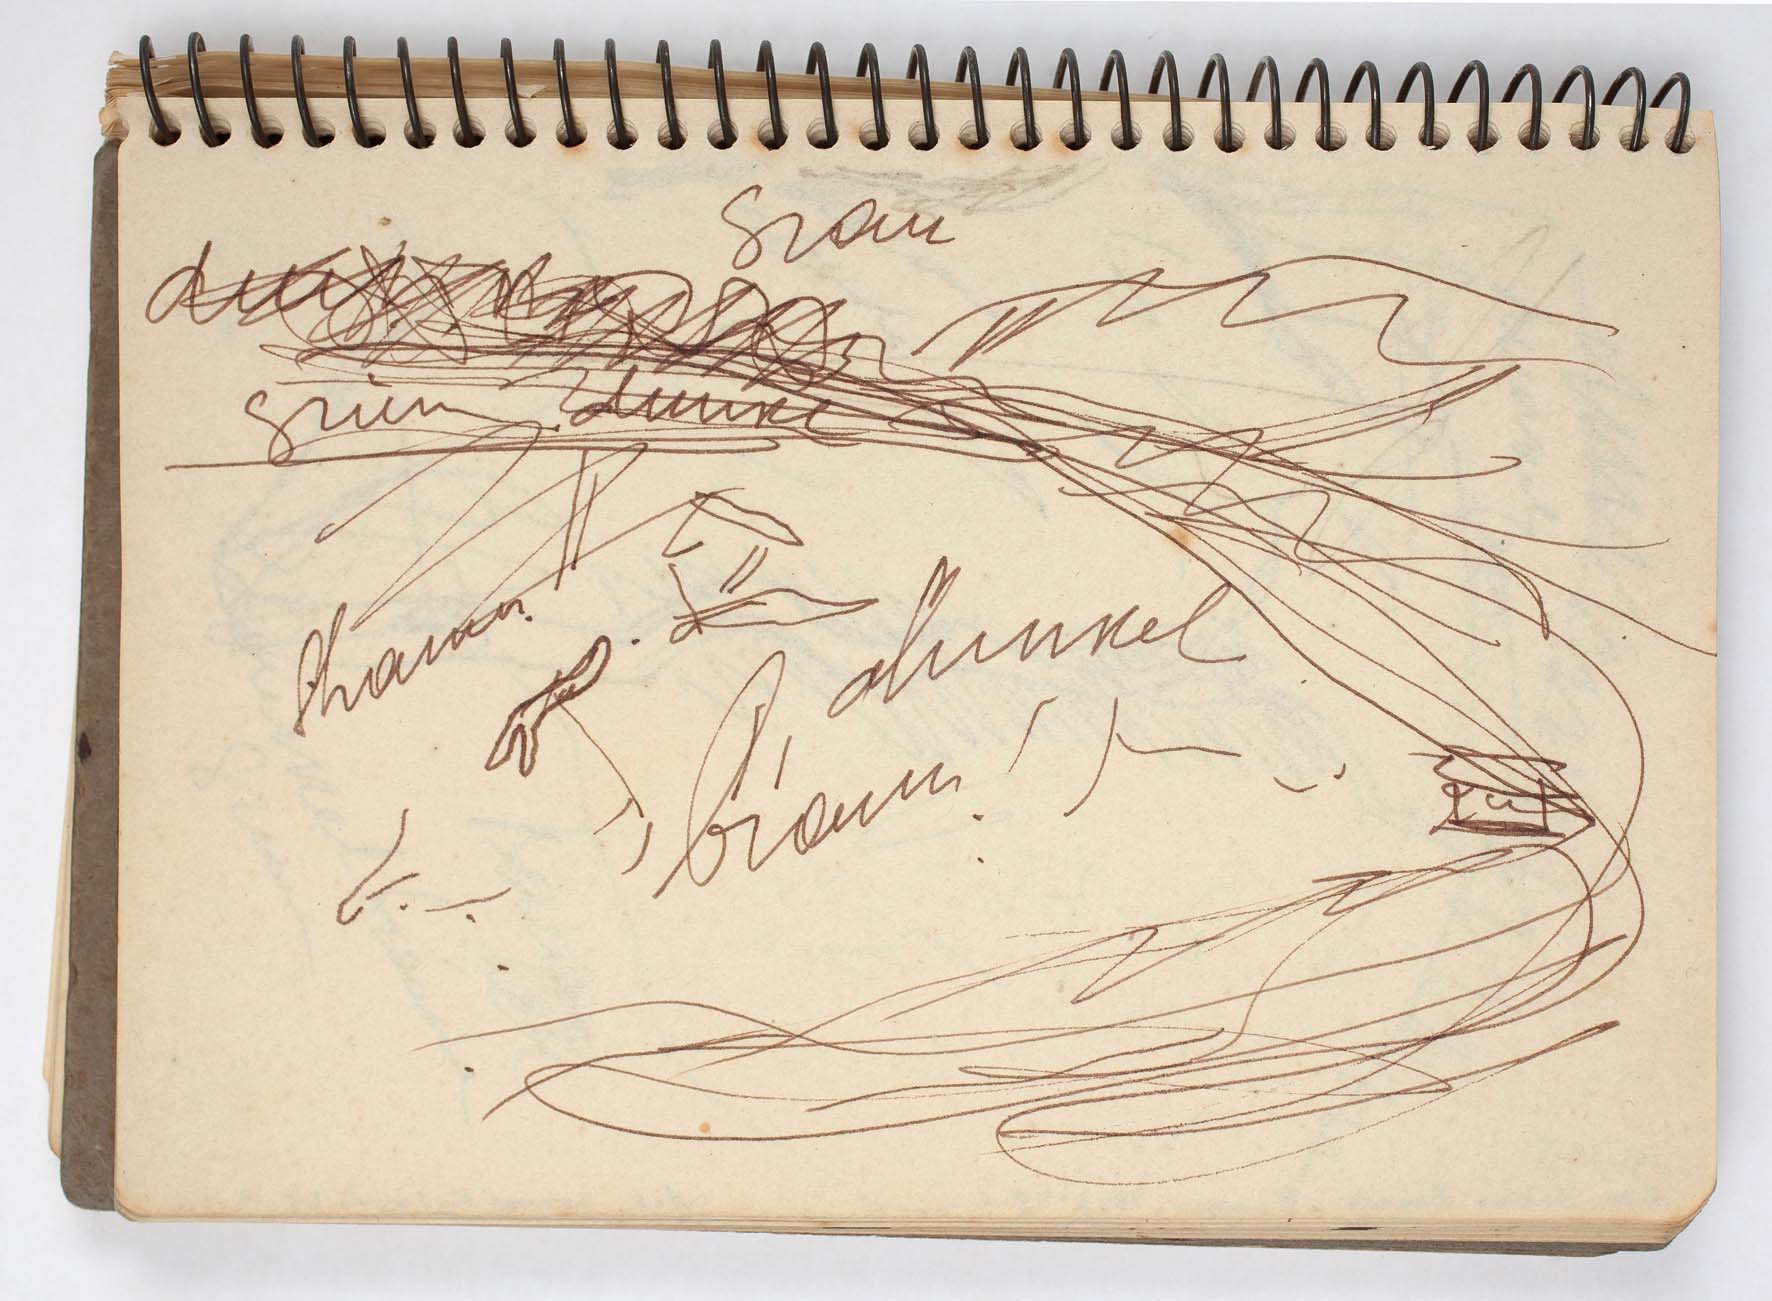 grau
grün dunkel
braun
dunkel
braun
gut